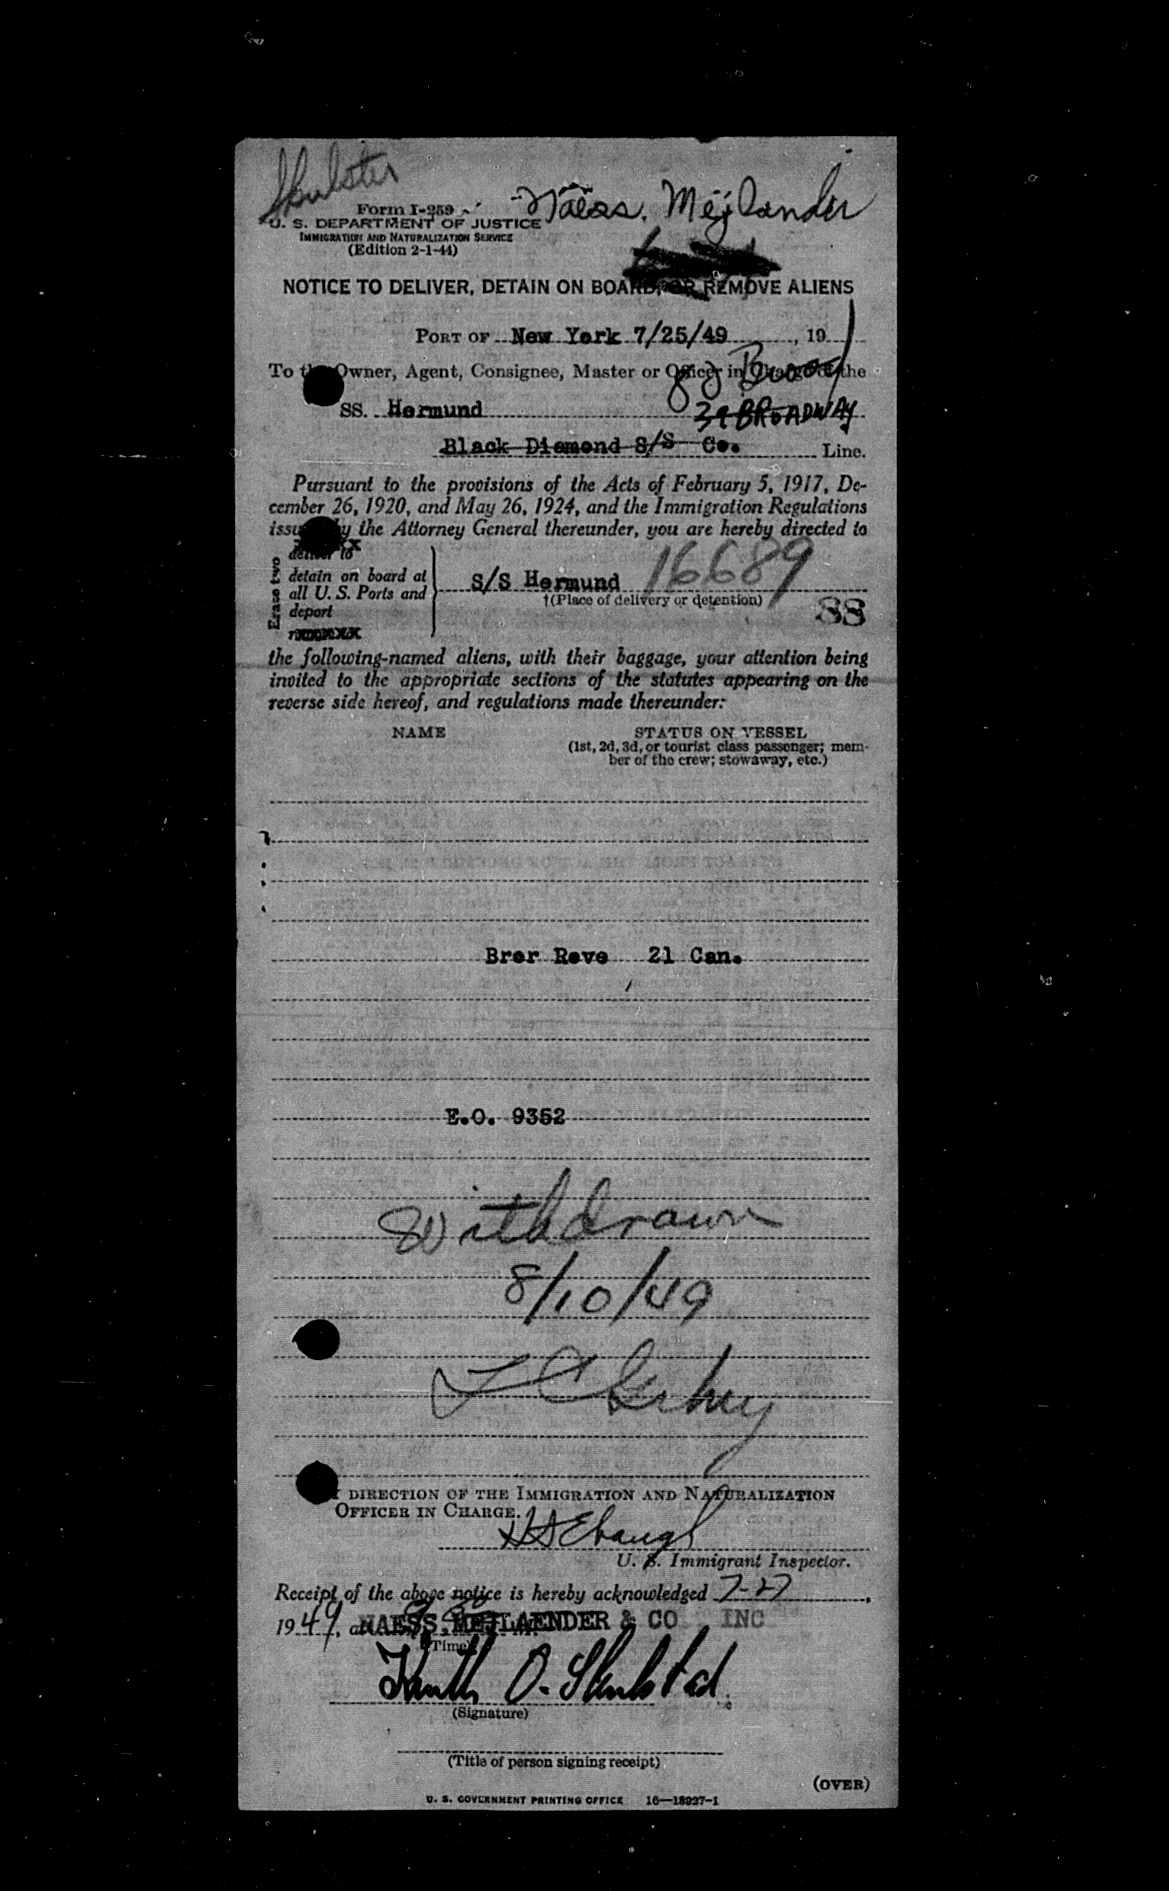 Skulster
Naess, Mejlander
Form I-259
U. S. DEPARTMENT OF JUSTICE
IMMIGRATION AND NATURALIZATION SERVICE
(Edition 2-1-44)
NOTICE TO DELIVER, DETAIN ON BOARD, OR REMOVE ALIENS
PORT OF New York 7/25/49, 19
To the Owner, Agent, Consignee, Master or Officer in Charge of the
SS. Hermund
39 BROADWAY
Black Diamond S/S Co. Line.
Pursuant to the provisions of the Acts of February 5, 1917, De-
cember 26, 1920, and May 26, 1924, and the Immigration Regulations
issued by the Attorney General thereunder, you are hereby directed to
Erase two
deliver to
detain on board at
all U. S. Ports and
deport
S/S Hermund 16689
†(Place of delivery or detention)
88
the following-named aliens, with their baggage, your attention being
invited to the appropriate sections of the statutes appearing on the
reverse side hereof, and regulations made thereunder:
NAME STATUS ON VESSEL
(1st, 2d, 3d, or tourist class passenger; mem-
ber of the crew; stowaway, etc.)
Brer Reve 21 Can.
E.O. 9352
Withdrawn
8/10/49
DIRECTION OF THE IMMIGRATION AND NATURALIZATION
OFFICER IN CHARGE.
U. S. Immigrant Inspector.
Receipt of the above notice is hereby acknowledged 7-27,
1949, at
NAESS, MEJLAENDER & CO INC
(Time)
Knuth O. Skulstad
(Signature)
(Title of person signing receipt)
(OVER)
U. S. GOVERNMENT PRINTING OFFICE 16—18927-1